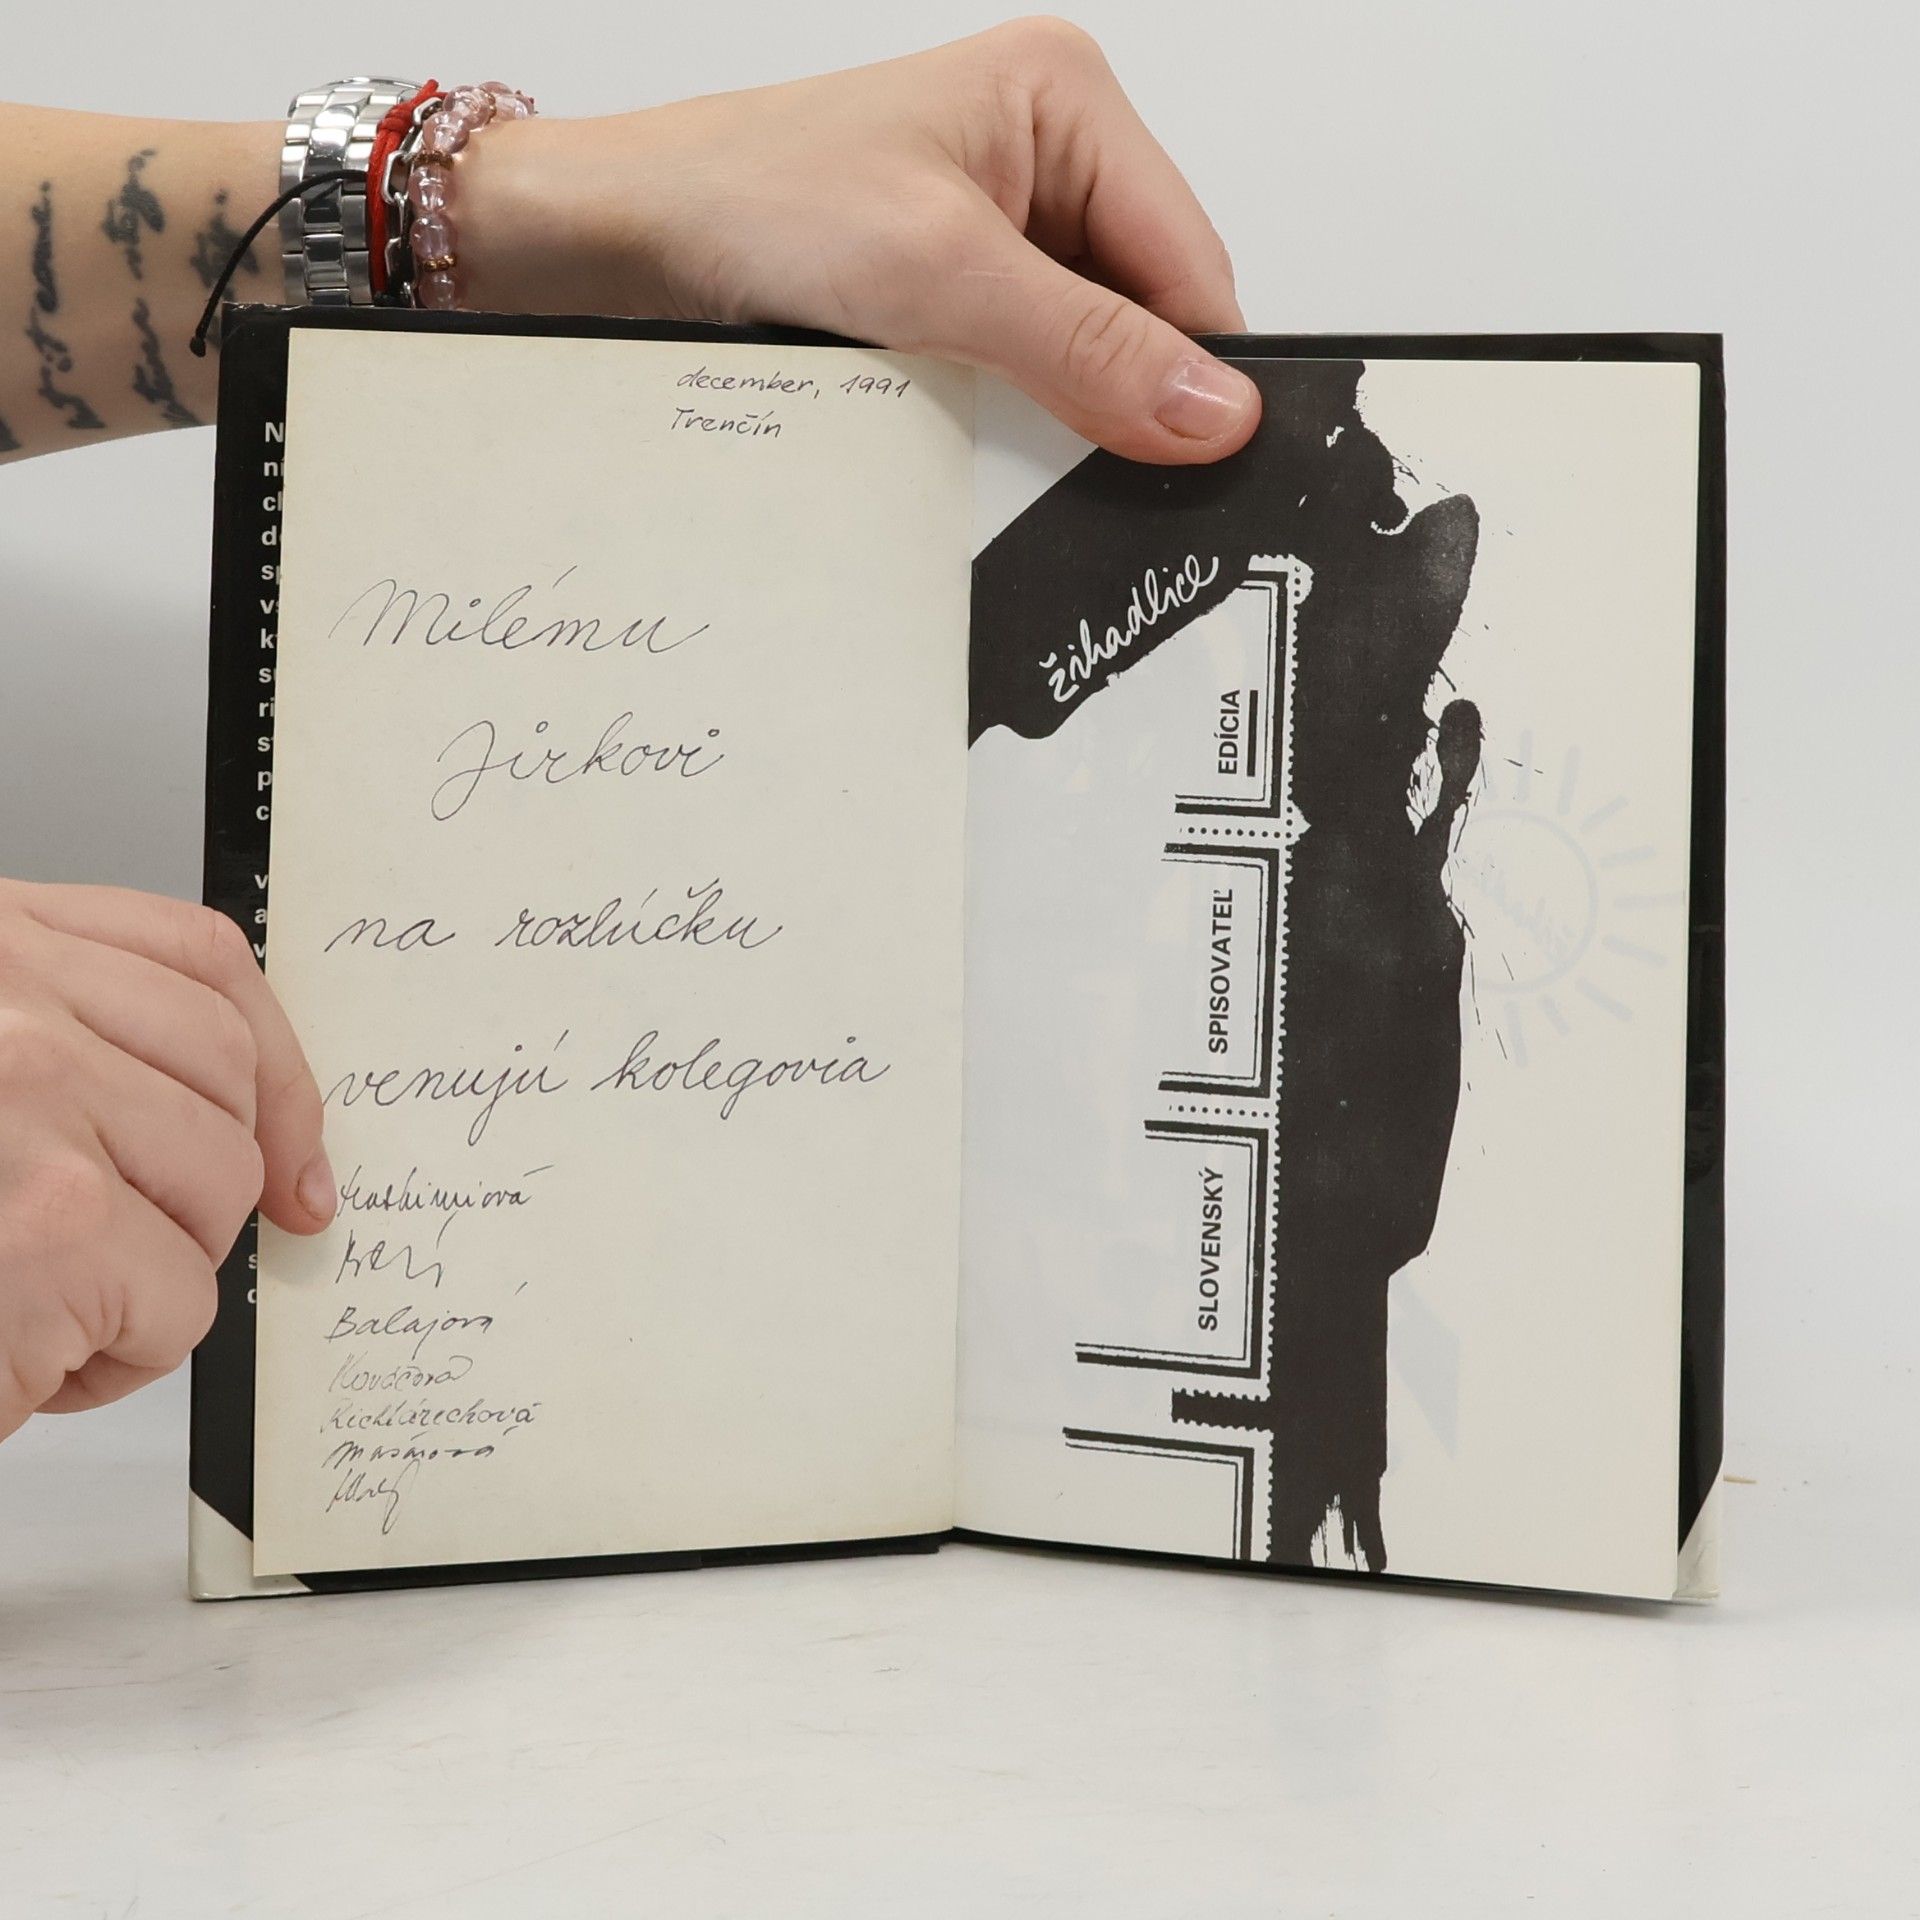 december, 1991
Trenčín
Milému
Jirkovi
na rozlúčku
venujú kolegovia
Balajová
Kováčová
Richtárechová
Masárová
žihadlice
EDÍCIA
SPISOVATEĽ
SLOVENSKÝ